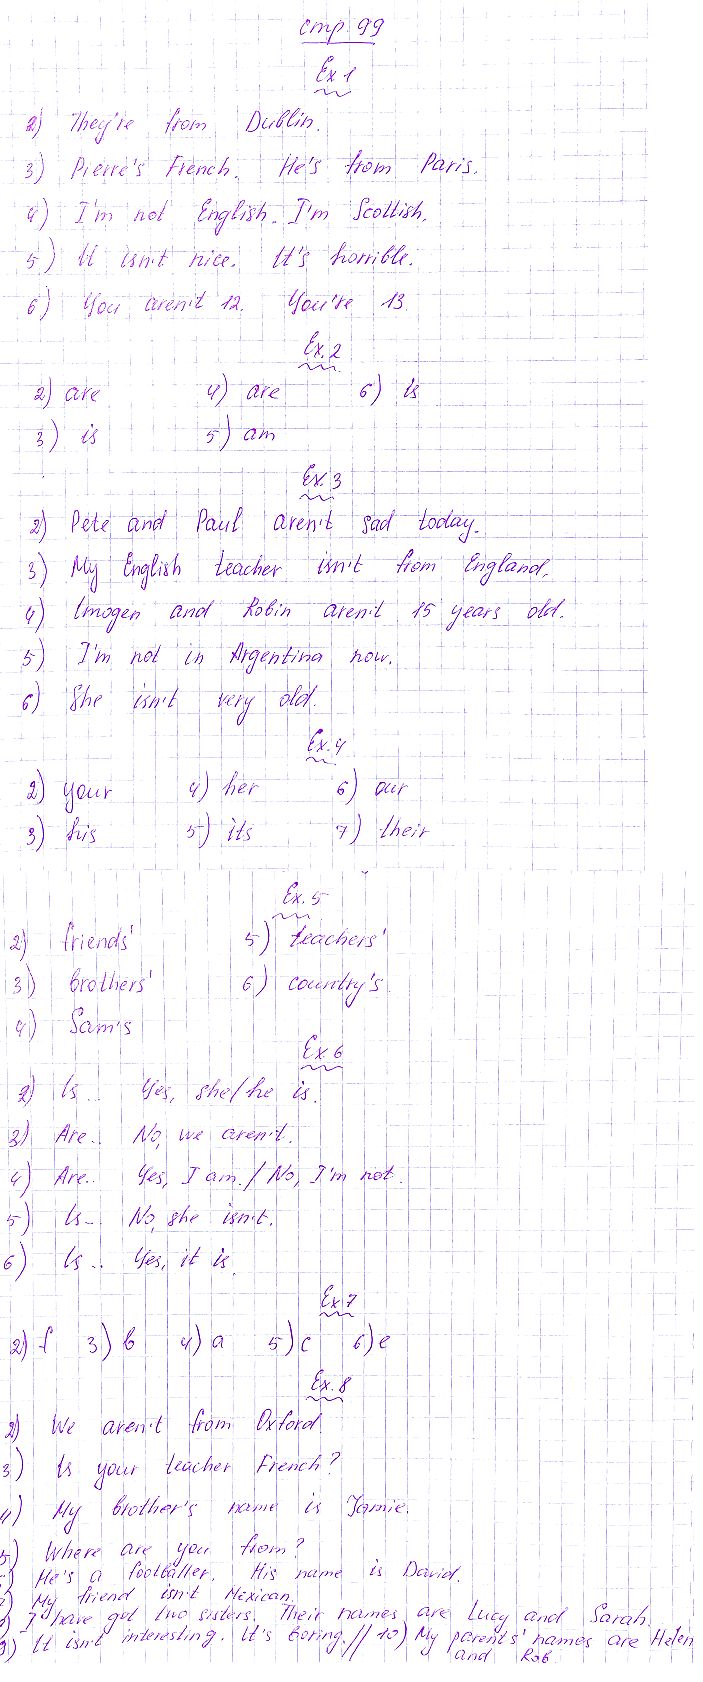 стр. 99
Ex 1
2) They're from Dublin.
3) Pierre's French. He's from Paris.
4) I'm not English. I'm Scottish.
5) It isn't nice. It's horrible.
6) You aren't 12. You're 13.
Ex. 2
2) are 4) are 6) is
3) is 5) am
Ex. 3
2) Pete and Paul aren't sad today.
3) My English teacher isn't from England.
4) Imogen and Robin aren't 15 years old.
5) I'm not in Argentina now.
6) She isn't very old.
Ex. 4
2) your 4) her 6) our
3) his 5) its 7) their
Ex. 5
2) friends' 5) teachers'
3) brothers' 6) country's
4) Sam's
Ex. 6
2) Is.. Yes, she/he is.
3) Are.. No, we aren't.
4) Are.. Yes, I am. / No, I'm not.
5) Is.. No, she isn't.
6) Is.. Yes, it is.
Ex 7
2) f 3) b 4) a 5) c 6) e
Ex. 8
2) We aren't from Oxford.
3) Is your teacher French?
4) My brother's name is Jamie.
5) Where are you from?
He's a footballer. His name is David.
My friend isn't Mexican.
I have got two sisters. Their names are Lucy and Sarah.
9) It isn't interesting. It's boring. // 10) My parents' names are Helen
and Rob.